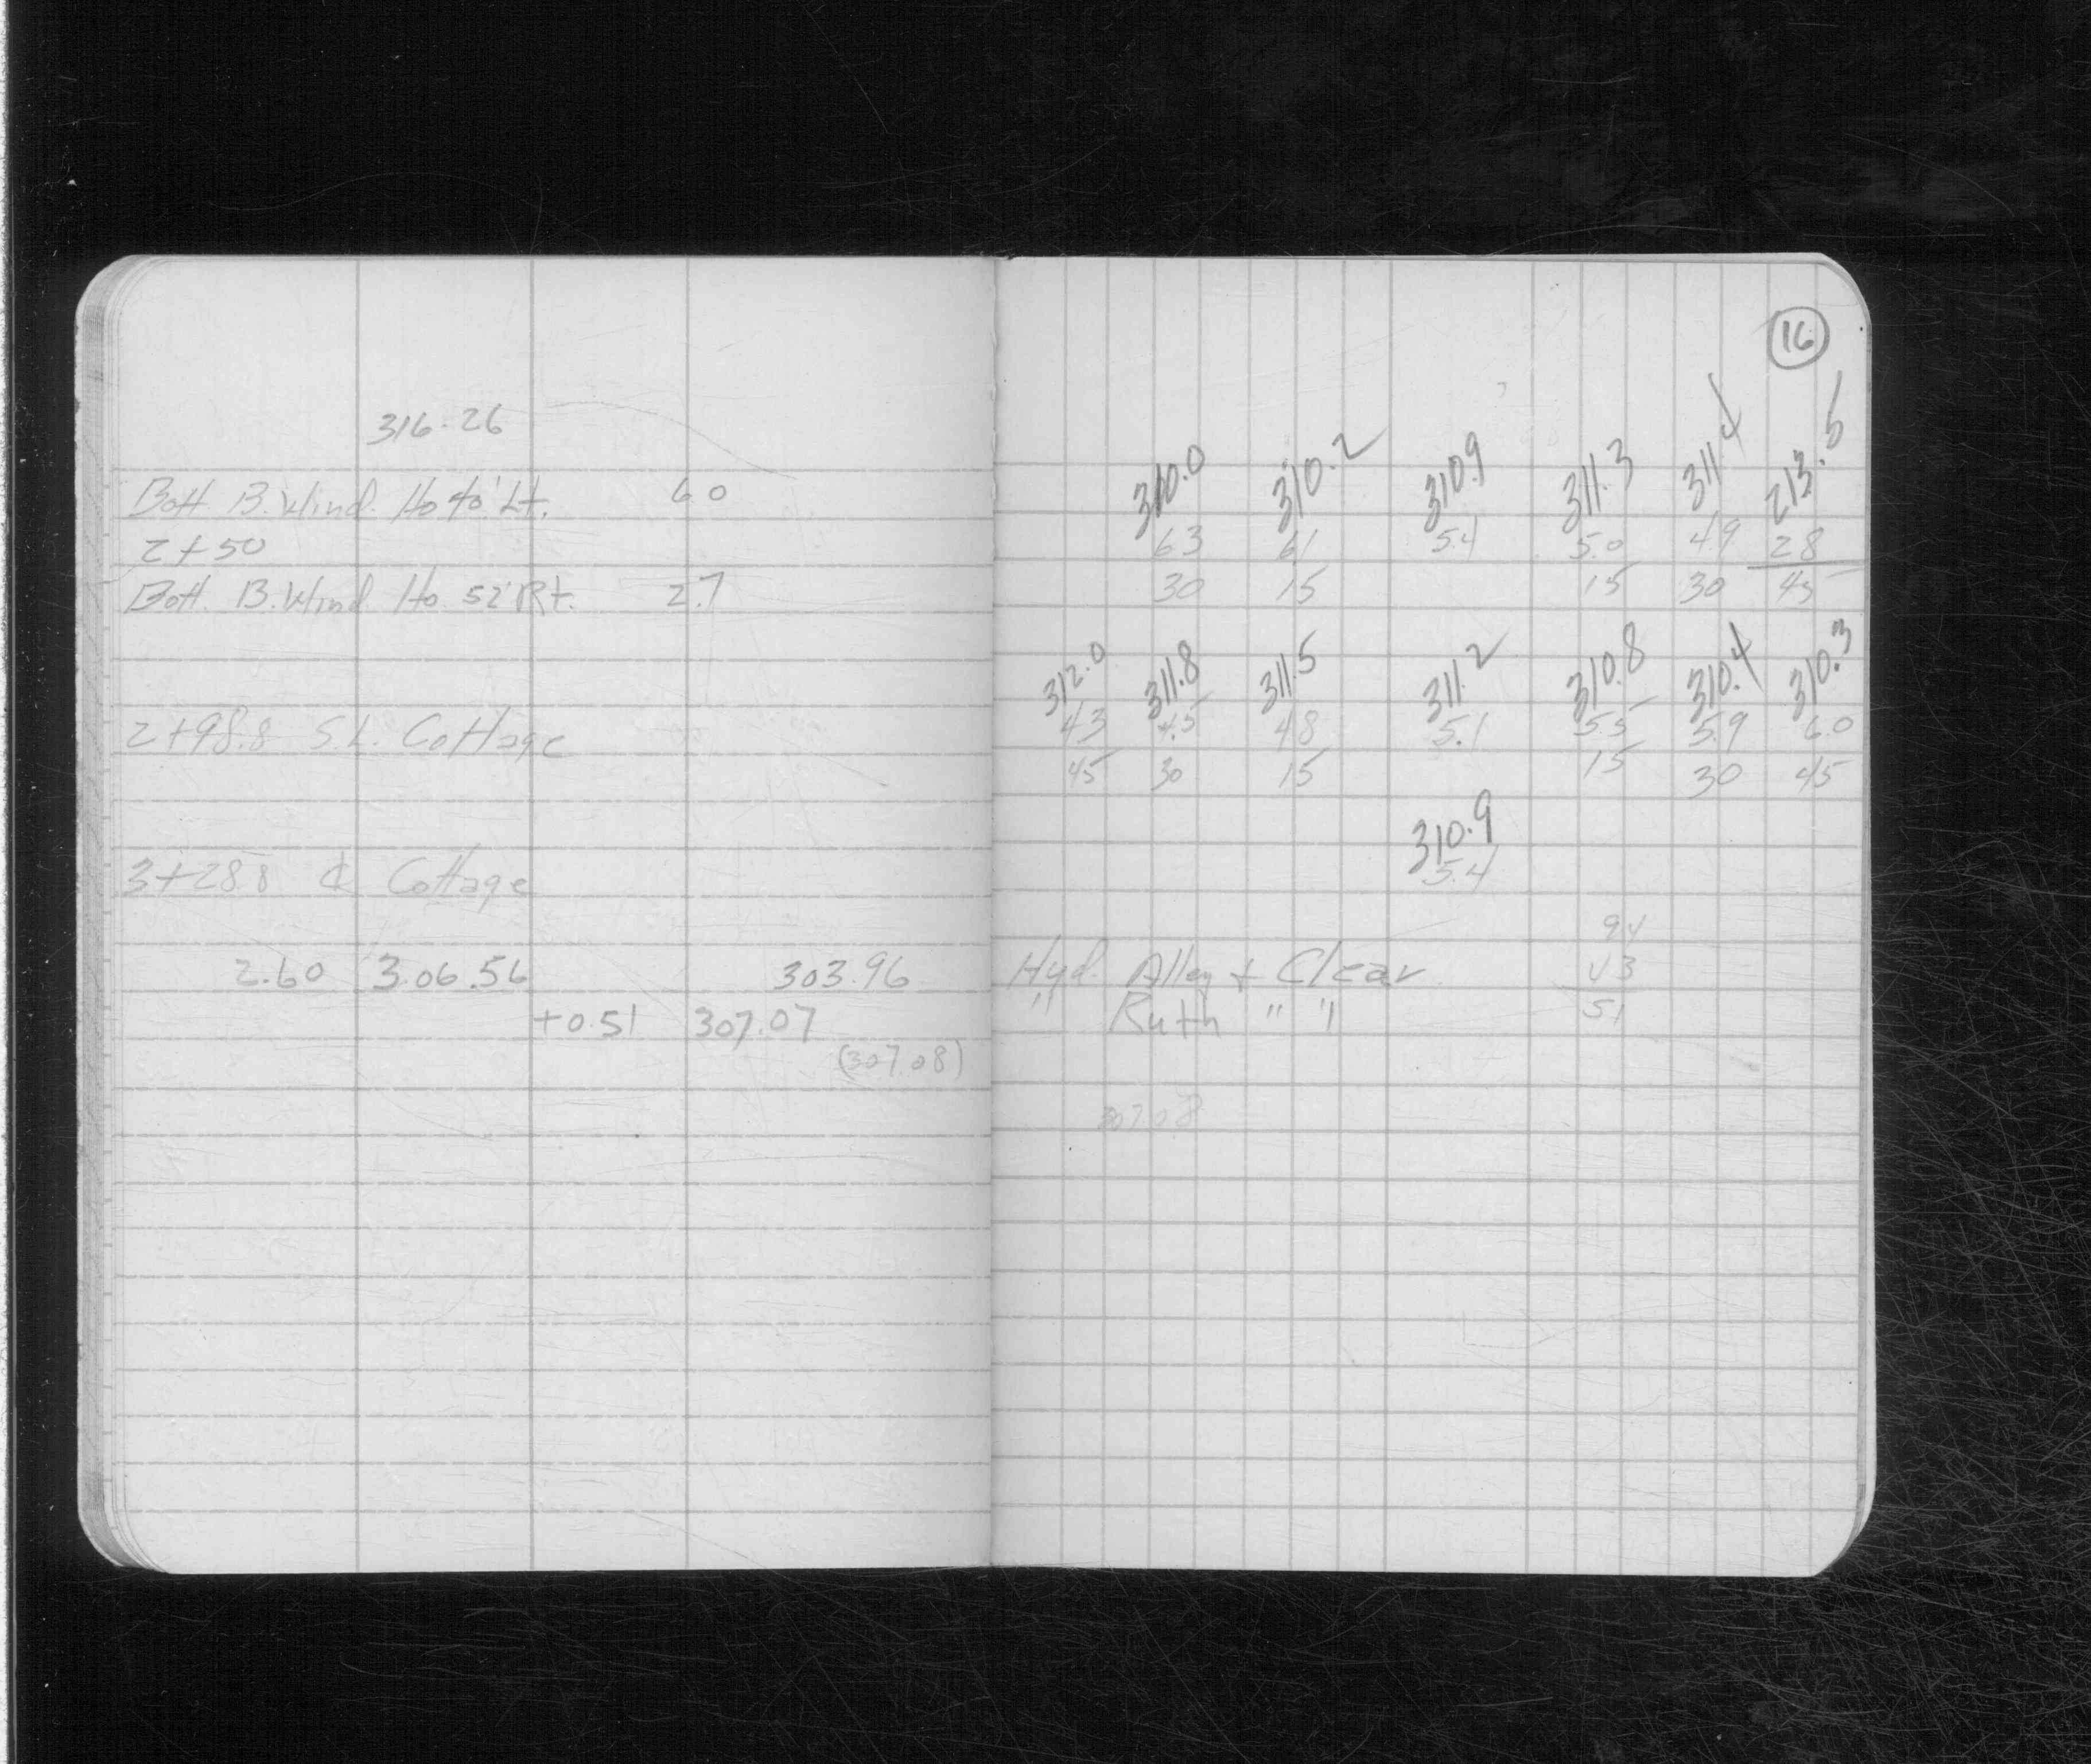 16
316.26
Bott B. Wind. Ho 40' Lt. 6.0
310.0 310.2 310.9 311.3 311.4 213.5
2+50 63 61 5.4 5.0 49 28
Bott. B. Wind Ho. 52' Rt. 2.7 30 15 15 30 45
312.0 311.8 311.5 311.2 310.8 310.4 310.3
2+98.8 S.L. Cottage 43 4.5 48 5.1 5.5 5.9 6.0
45 30 15 15 30 45
310.9
3+28.8 ℄ Cottage 5.4
94
2.60 3.06.56 303.96 Hyd. Alley + Clear 43
+0.51 307.07 " Ruth " " 51
(307.08)
307.08